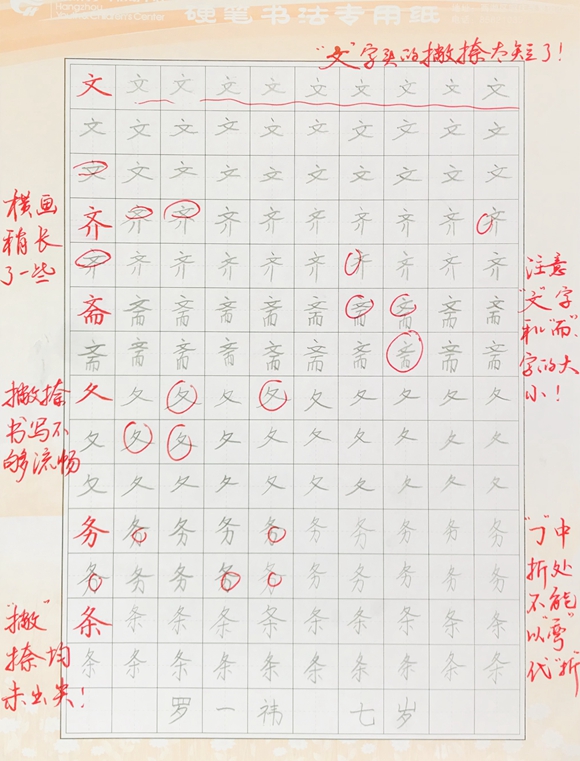 Hangzhou
Children's Center
硬笔书法专用纸
"文"字头的撇捺太短了!
文文文文文文文文文文
文文文文文文文文文文
文文文文文文文文文文
齐齐齐齐齐齐齐齐齐齐
齐齐齐齐齐齐齐齐齐齐
斋斋斋斋斋斋斋斋斋斋
斋斋斋斋斋斋斋斋斋斋
夂夂夂夂夂夂夂夂夂夂
夂夂夂夂夂夂夂夂夂夂
夂夂夂夂夂夂夂夂夂夂
务务务务务务务务务务
务务务务务务务务务务
条条条条条条条条条条
条条条条条条条条条条
罗一祎 七岁
横画
稍长
了一些
撇捺
书写不
够流畅
"撇"
捺均
未出尖!
注意
"文"字
和"而"
字的大
小!
"㇆"中
折处
不能
以"弯"
代"折"